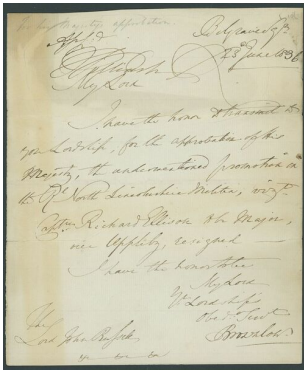 for his Majesty's approbation
Belgrave Sqr.
Appd.
23d June 1836
My Lord
I have the honor to transmit to
your Lordship, for the approbation of His
Majesty, the undermentioned promotion in
the Rl. North Lincolnshire Militia, vizt.
Captn. Richard Ellison to be Major,
vice Appleby, resigned
I have the honor to be
My Lord
Yr Lordship's
Obedt Servt
Brownlow
The
Lord John Russell